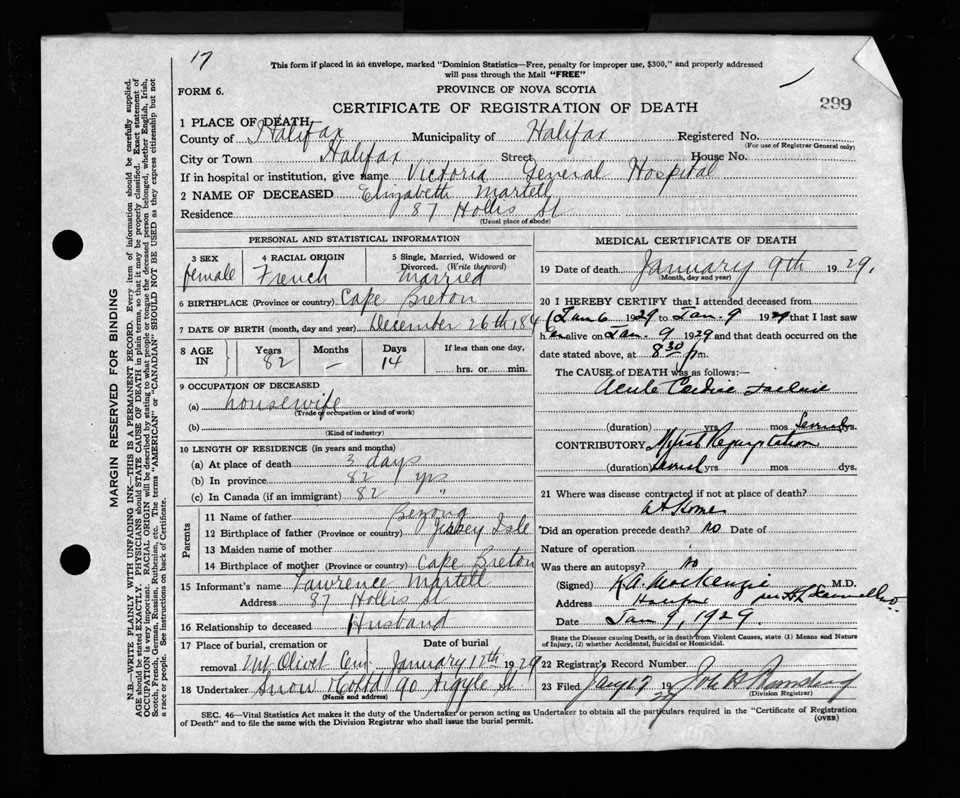 17
This form if placed in an envelope, marked "Dominion Statistics—Free, penalty for improper use, $300," and properly addressed
will pass through the Mail "FREE"
FORM 6.
PROVINCE OF NOVA SCOTIA
299
CERTIFICATE OF REGISTRATION OF DEATH
1 PLACE OF DEATH
County of Halifax Municipality of Halifax Registered No.
(For use of Registrar General only)
City or Town Halifax Street House No.
If in hospital or institution, give name Victoria General Hospital
2 NAME OF DECEASED Elizabeth Martell
Residence 87 Hollis St
(Usual place of abode)
PERSONAL AND STATISTICAL INFORMATION
3 SEX female
4 RACIAL ORIGIN French
5 Single, Married, Widowed or
Divorced. (Write the word)
Married
6 BIRTHPLACE (Province or country) Cape Breton
7 DATE OF BIRTH (month, day and year) December 26th 184
8 AGE IN
Years 82
Months —
Days 14
If less than one day,
hrs. or min.
9 OCCUPATION OF DECEASED
(a) housewife
(Trade or occupation or kind of work)
(b)
(Kind of industry)
10 LENGTH OF RESIDENCE (in years and months)
(a) At place of death 3 days
(b) In province 82 yrs
(c) In Canada (if an immigrant) 82 "
Parents
11 Name of father
12 Birthplace of father (Province or country) Jersey Isle
13 Maiden name of mother
14 Birthplace of mother (Province or country) Cape Breton
15 Informant's name Lawrence Martell
Address 87 Hollis St
16 Relationship to deceased Husband
17 Place of burial, cremation or
removal Mt Olivet Cem
Date of burial
January 12th 1929
18 Undertaker Snow & Co Ltd 90 Argyle St
(Name and address)
MEDICAL CERTIFICATE OF DEATH
19 Date of death January 9th 1929,
(Month, day and year)
20 I HEREBY CERTIFY that I attended deceased from
Jan 6 1929 to Jan. 9 1929 that I last saw
her alive on Jan. 9 1929 and that death occurred on the
date stated above, at 8 30 p m.
The CAUSE of DEATH was as follows:—
Acute Cardiac Failure
(duration) yrs. mos dys.
CONTRIBUTORY Mitral Regurgitation
(duration) yrs mos dys.
21 Where was disease contracted if not at place of death?
At Home
Did an operation precede death? No Date of
Nature of operation
Was there an autopsy? No
(Signed) K.A. MacKenzie M.D.
Address Halifax per
Date Jan 9, 1929.
State the Disease causing Death, or in death from Violent Causes, state (1) Means and Nature
of Injury, (2) whether Accidental, Suicidal or Homicidal.
22 Registrar's Record Number
23 Filed 19
(Division Registrar)
SEC. 46—Vital Statistics Act makes it the duty of the Undertaker or person acting as Undertaker to obtain all the particulars required in the "Certificate of Registration
of Death" and to file the same with the Division Registrar who shall issue the burial permit.
(OVER)
MARGIN RESERVED FOR BINDING
N.B.—WRITE PLAINLY WITH UNFADING INK—THIS IS A PERMANENT RECORD. Every item of information should be carefully supplied.
AGE should be stated EXACTLY. PHYSICIANS should STATE CAUSE OF DEATH in plain terms, so that it may be properly classified. Exact statement of
OCCUPATION is very important. RACIAL ORIGIN will be described by stating to what people or tongue the deceased person belonged, whether English, Irish,
Scotch, French, German, Russian, Ruthenian, etc. The terms "AMERICAN" or "CANADIAN" SHOULD NOT BE USED as they express citizenship but not
a race or people. See instructions on back of Certificate.